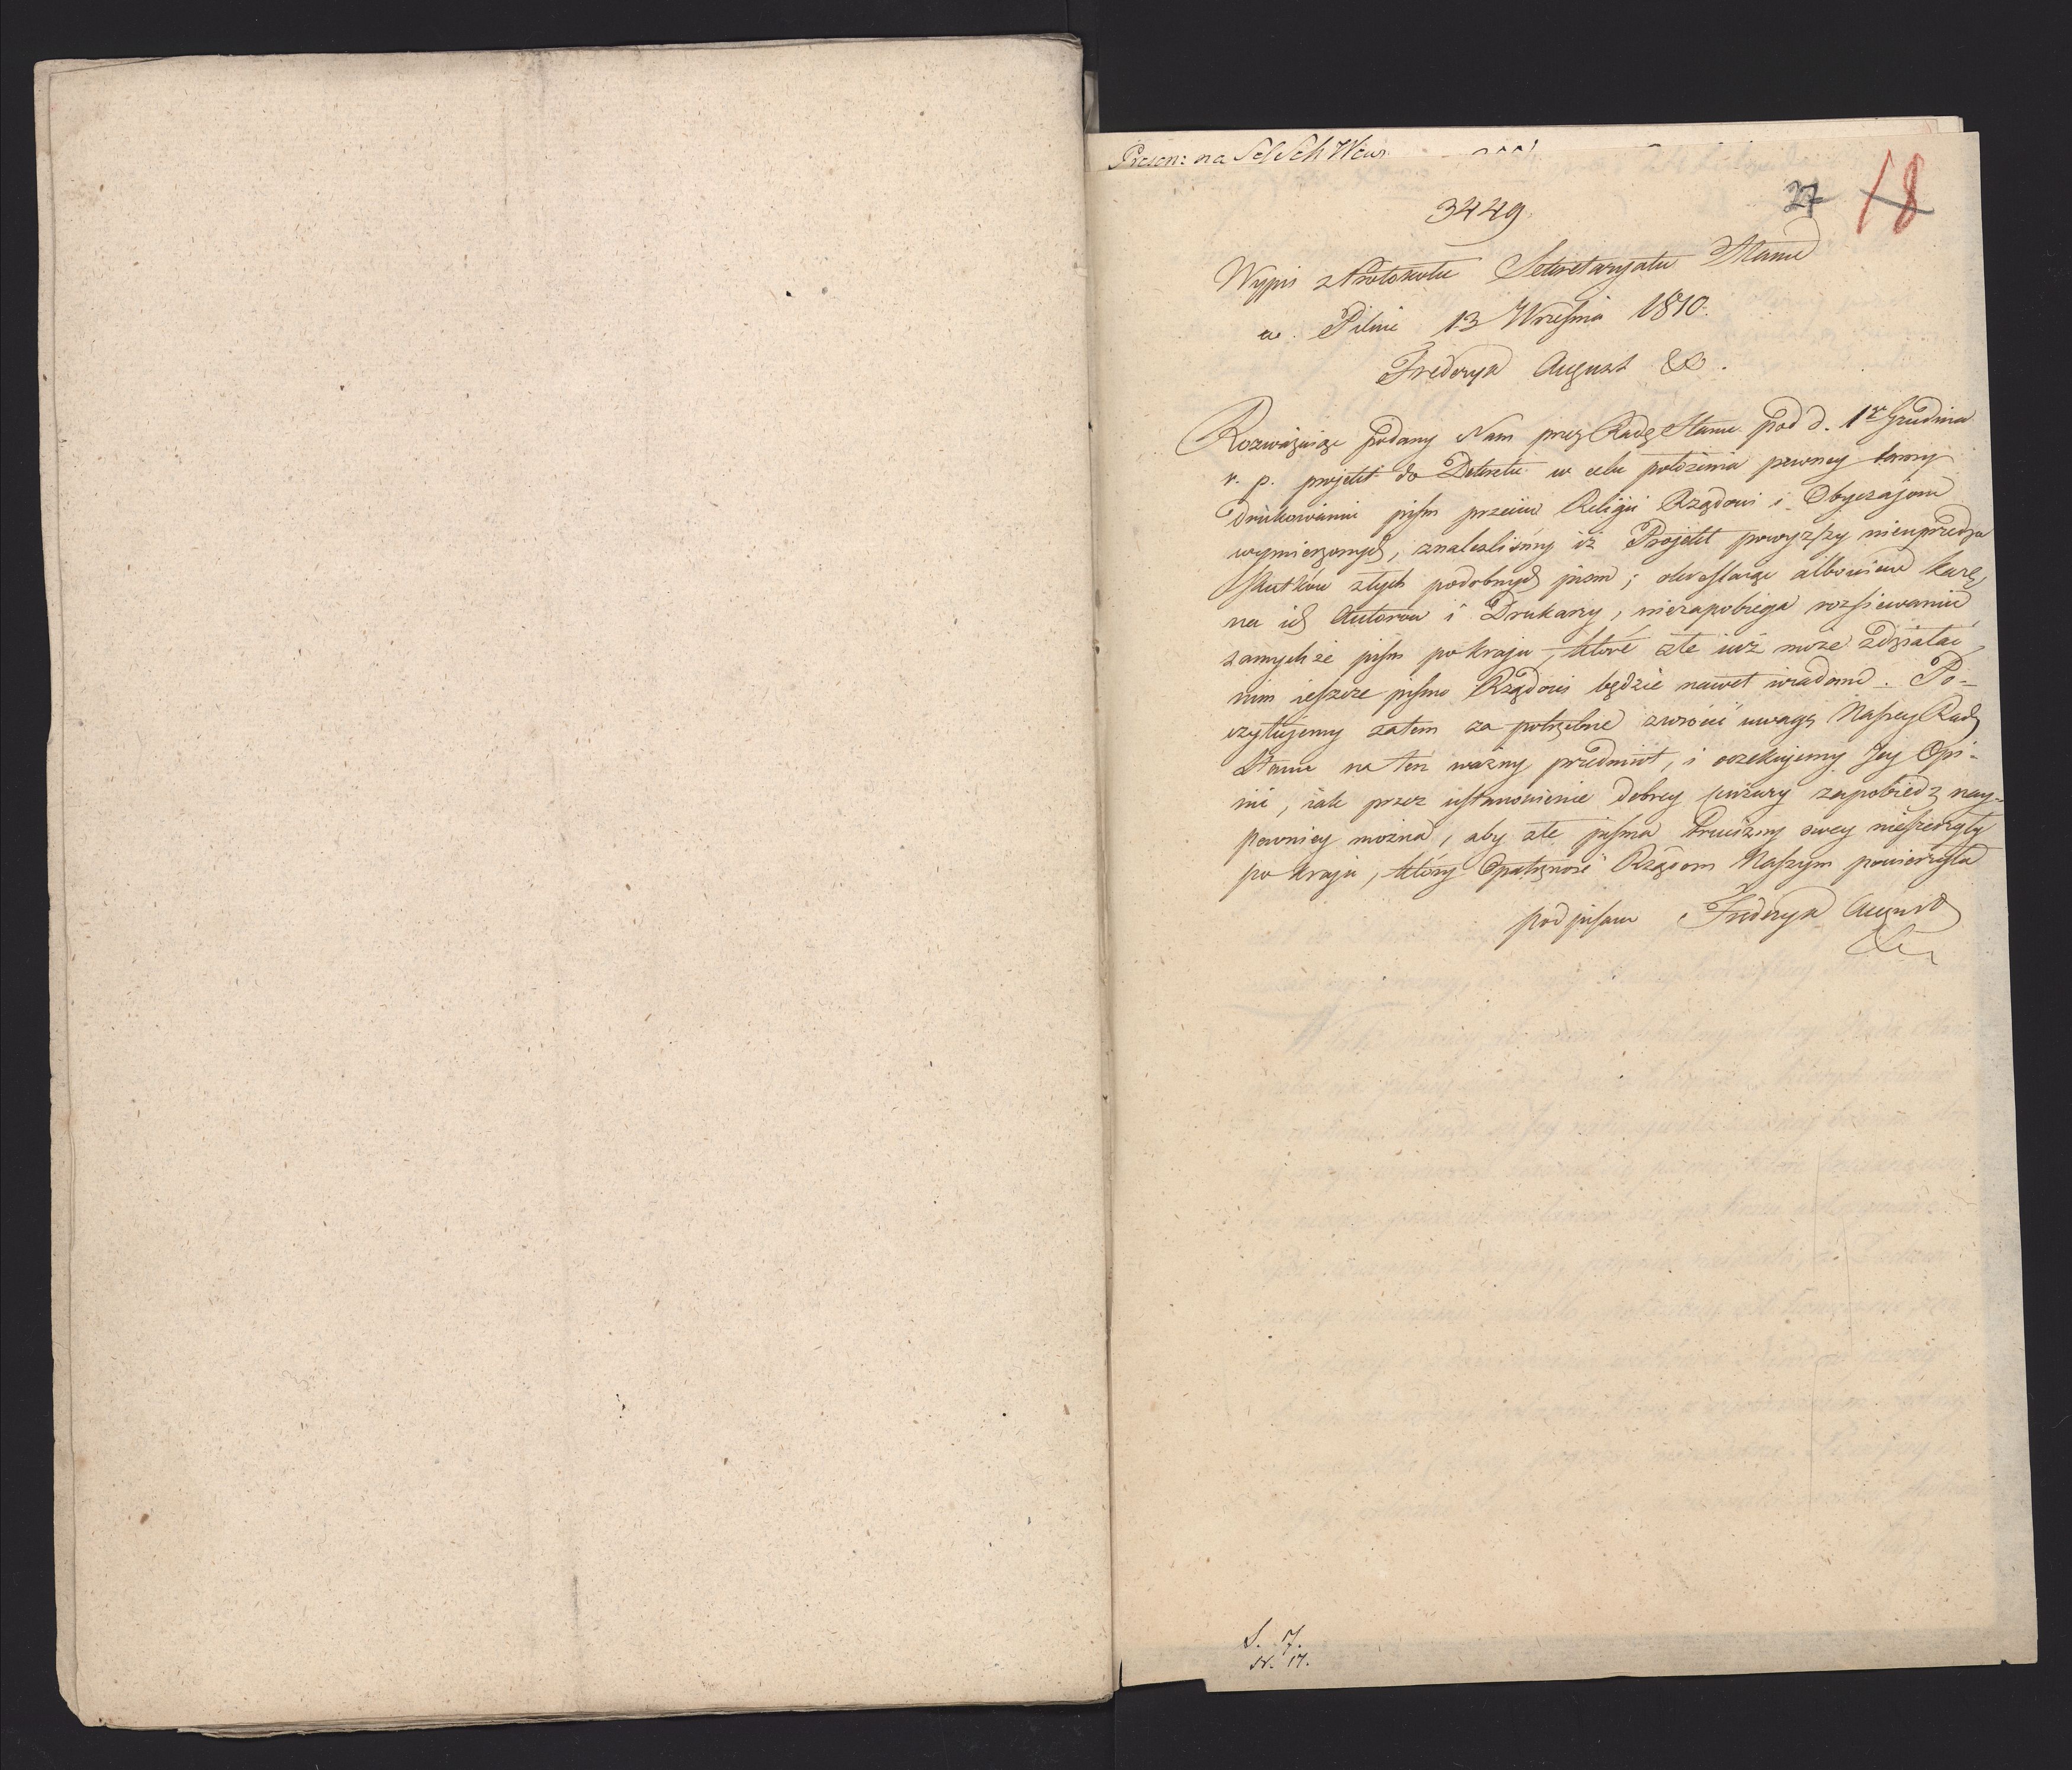 Presen: na
27 18
3449.
Wypis z Protokołu Sekretaryatu Stanu
w Pilnie 13 Wrzesnia 1810.
Frederyk August &c.
Rozważaiąc podany Nam przez Radę Stanu pod d. 1 Grudnia
r. p. projekt do Dekretu w celu położenia pewney tamy
drukowaniu pism przeciw Religii Rządowi i Obyczaiom
wymierzonych, znaleźlismy iż Projekt powyższy nieuprzedza
skutków złych podobnych pism; okreslaiąc albowiem karę
na ich Autorow i Drukarzy, niezapobiega rozsiewaniu
samychże pism po kraju, które złe iuż może zdziałać,
nim ieszcze pismo Rządowi będzie nawet wiadome. Po-
czytujemy zatem za potrzebne zwrócić uwagę Naszey Rady
Stanu na ten ważny przedmiot, i oczekujemy Jey Opi-
nii, iak przez ustanowienie dobrey cenzury zapobiedz nay-
pewniey można, aby złe pisma trucizny swey nieszerzyły
po kraju, który Opatrzność Rządom Naszym powierzyła
podpisano Frederyk August
S. 7.
N. 17.